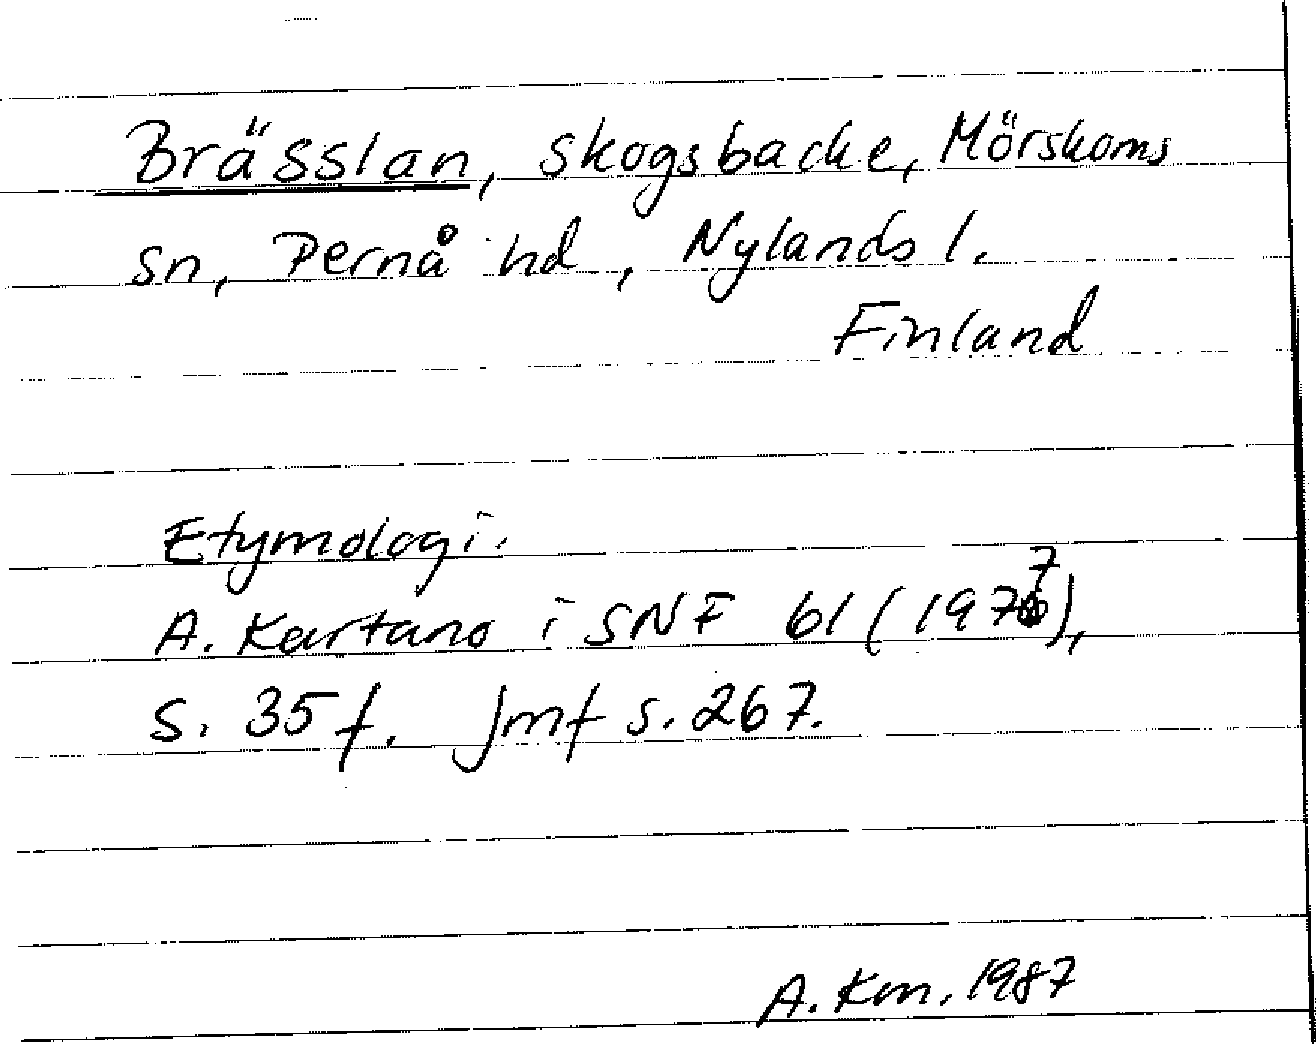 Brässlan, skogsbacke, Mörskoms
sn, Pernå hd, Nylands l.
Finland
Etymologi.
A. Kartano i SNF 61 (1977),
s. 35 f. Jmf s. 267.
A. Km. 1987